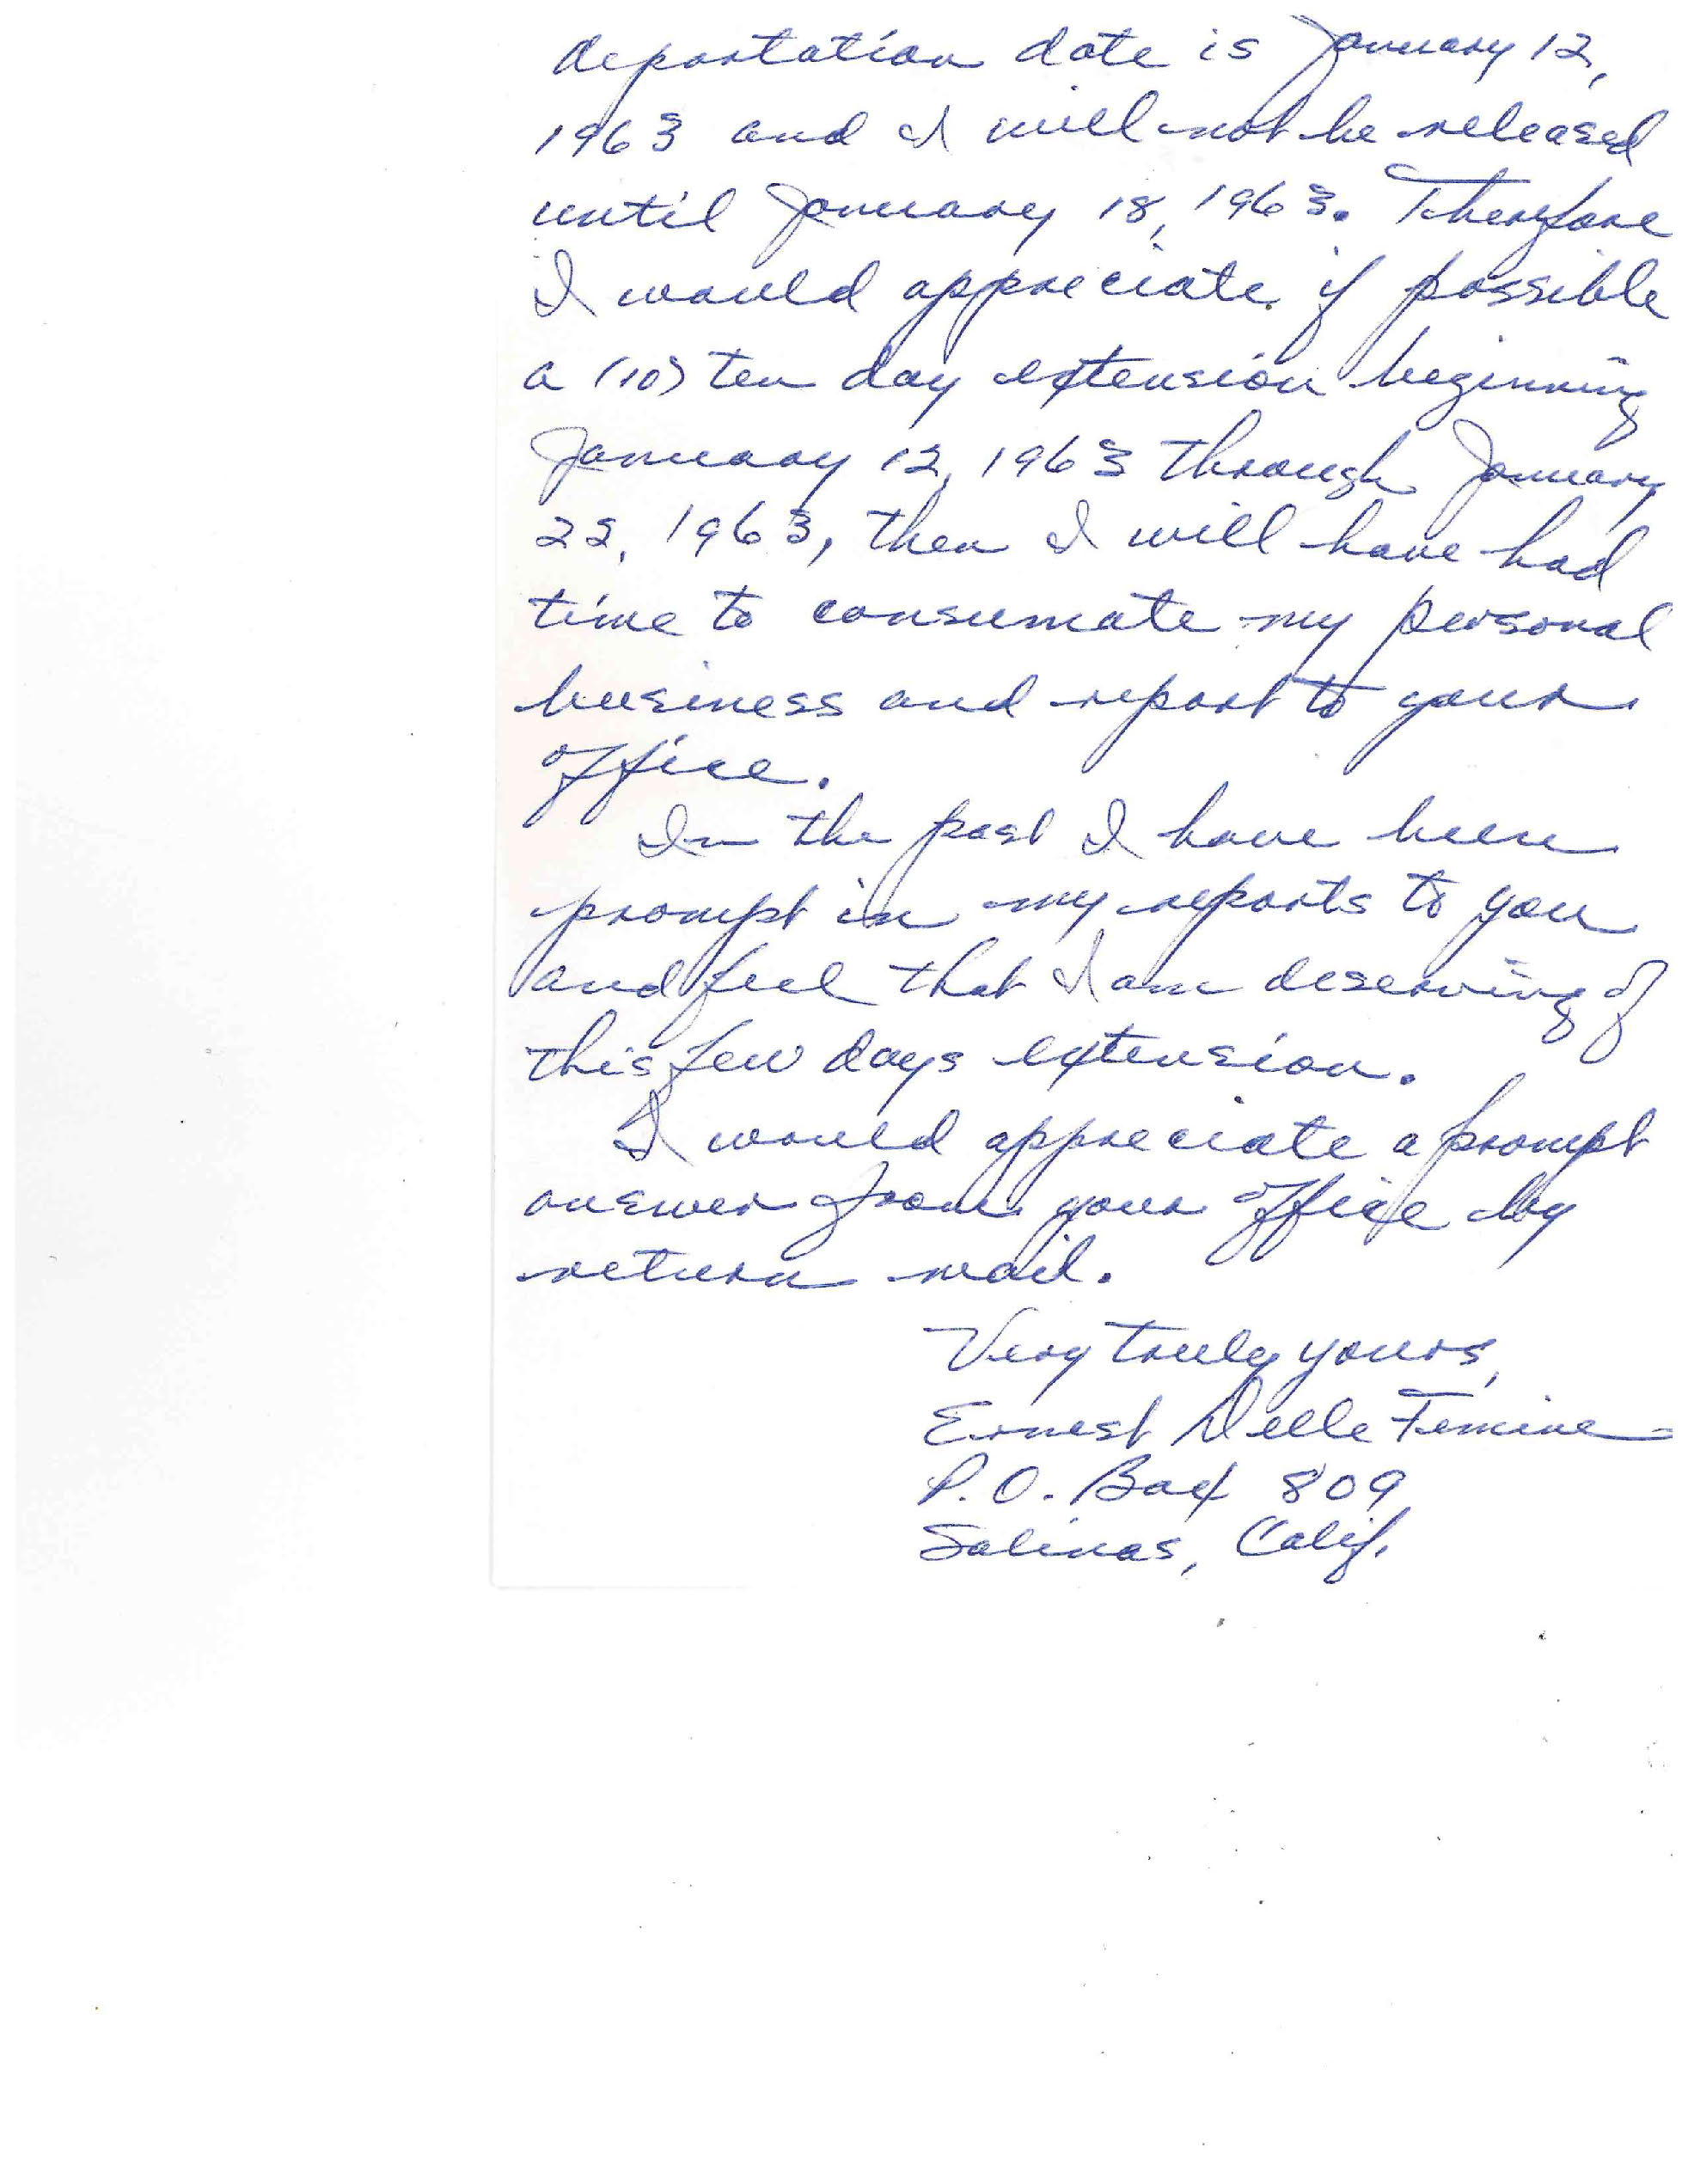 deportation date is January 12,
1963 and I will not be released
until January 18, 1963. Therefore
I would appreciate if possible
a (10) ten day extension beginning
January 12, 1963 through January
22, 1963, then I will have had
time to consumate my personal
business and report to your
office.
In the past I have been
prompt in my reports to you
and feel that I am deserving of
this few days extension.
I would appreciate a prompt
answer from your office by
return mail.
Very truly yours,
Ernest Delle Femine
P.O. Box 809
Salinas, Calif.